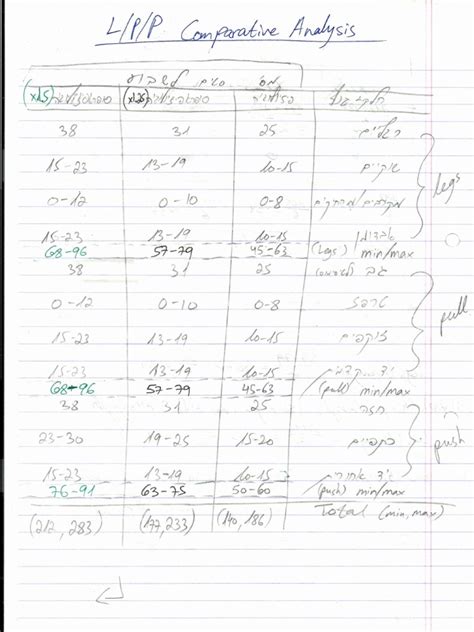 L/P/P Comparative Analysis
מס' סטים לשבוע
חלק גוף (x1.25) (x1.5)
רגליים 25 31 38
שוקיים 10-15 13-19 15-23
0-8 0-10 0-12
10-15 13-19 15-23
legs
(legs) min/max 45-63 57-79 68-96
גב 25 31 38
טרפז 0-8 0-10 0-12
זוקפים 10-15 13-19 15-23
pull
יד קדמית 10-15 13-19 15-23
(pull) min/max 45-63 57-79 68-96
חזה 25 31 38
כתפיים 15-20 19-25 23-30
push
יד אחורית 10-15 13-19 15-23
(push) min/max 50-60 63-75 76-91
Total (min,max) (140,186) (177,233) (212,283)